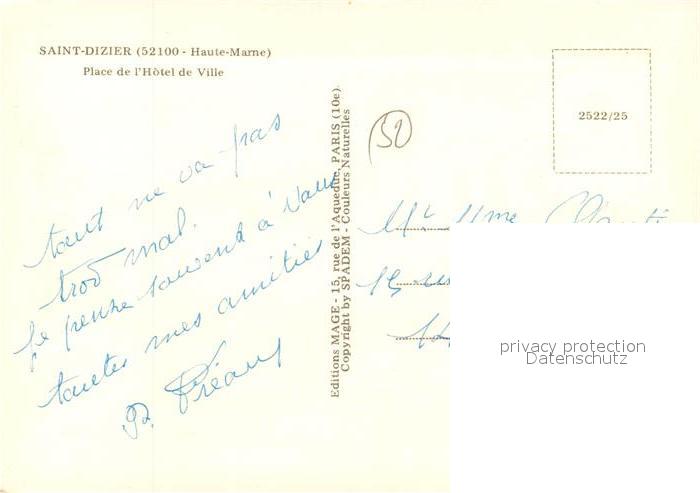 SAINT-DIZIER (52100 - Haute-Marne)
Place de l'Hôtel de Ville
tout ne va pas
trop mal.
Je pense souvent à vous
toutes mes amitiés
Editions MAGE - 15, rue de l'Aqueduc, PARIS (10e).
Copyright by SPADEM - Couleurs Naturelles
52
2522/25
Mr Mme
privacy protection
Datenschutz